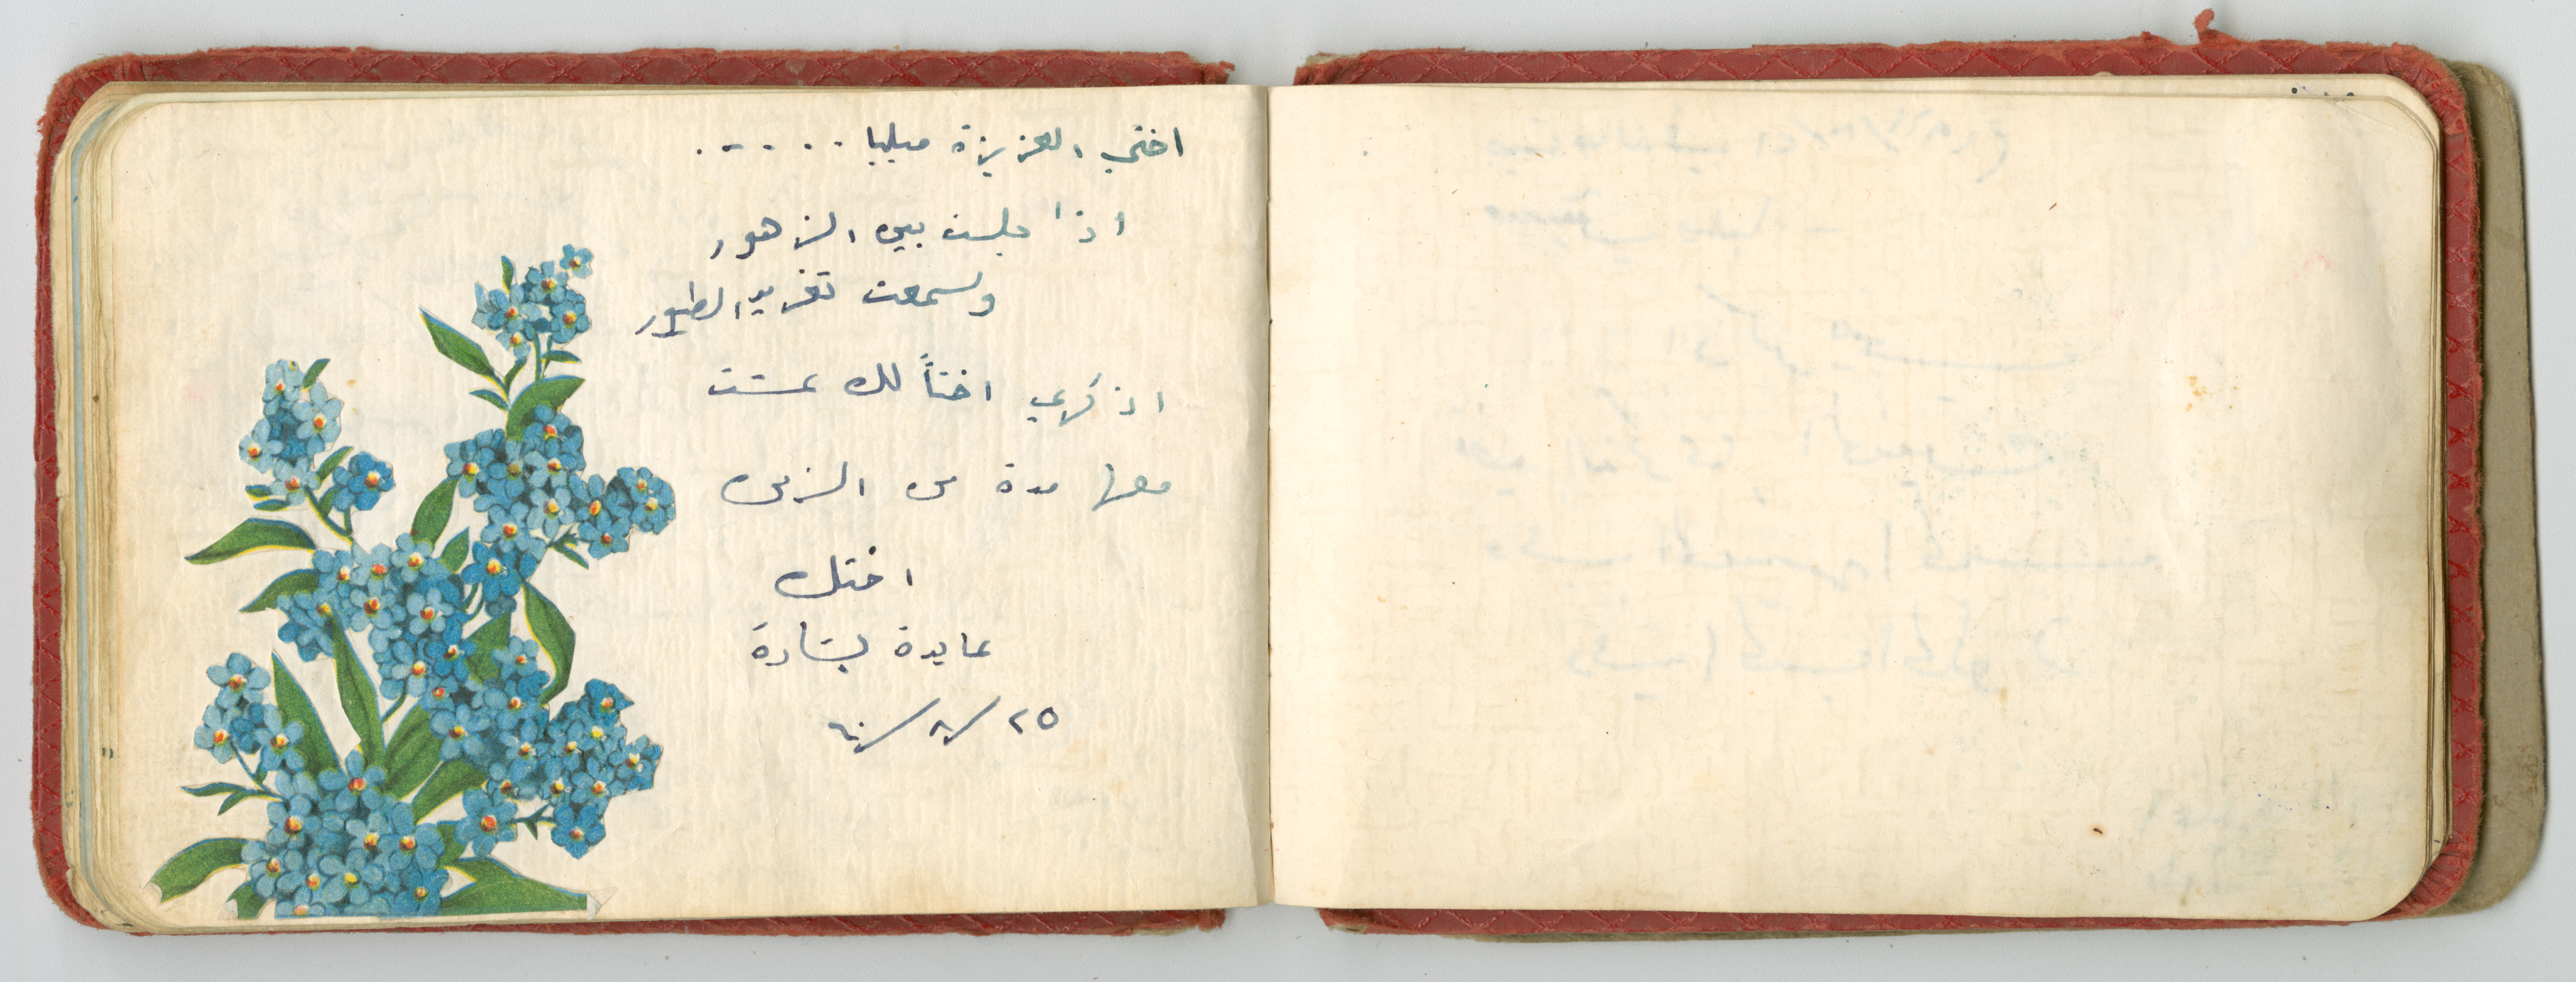 اختي العزيزة ميليا . . - . - .
اذا جلست بين الزهور
وسمعت تغريد الطيور
اذكري اختاً لك عشت
معها مدة من الزمن
اختك
عايدة بشارة
٢٥/٨/٦٠